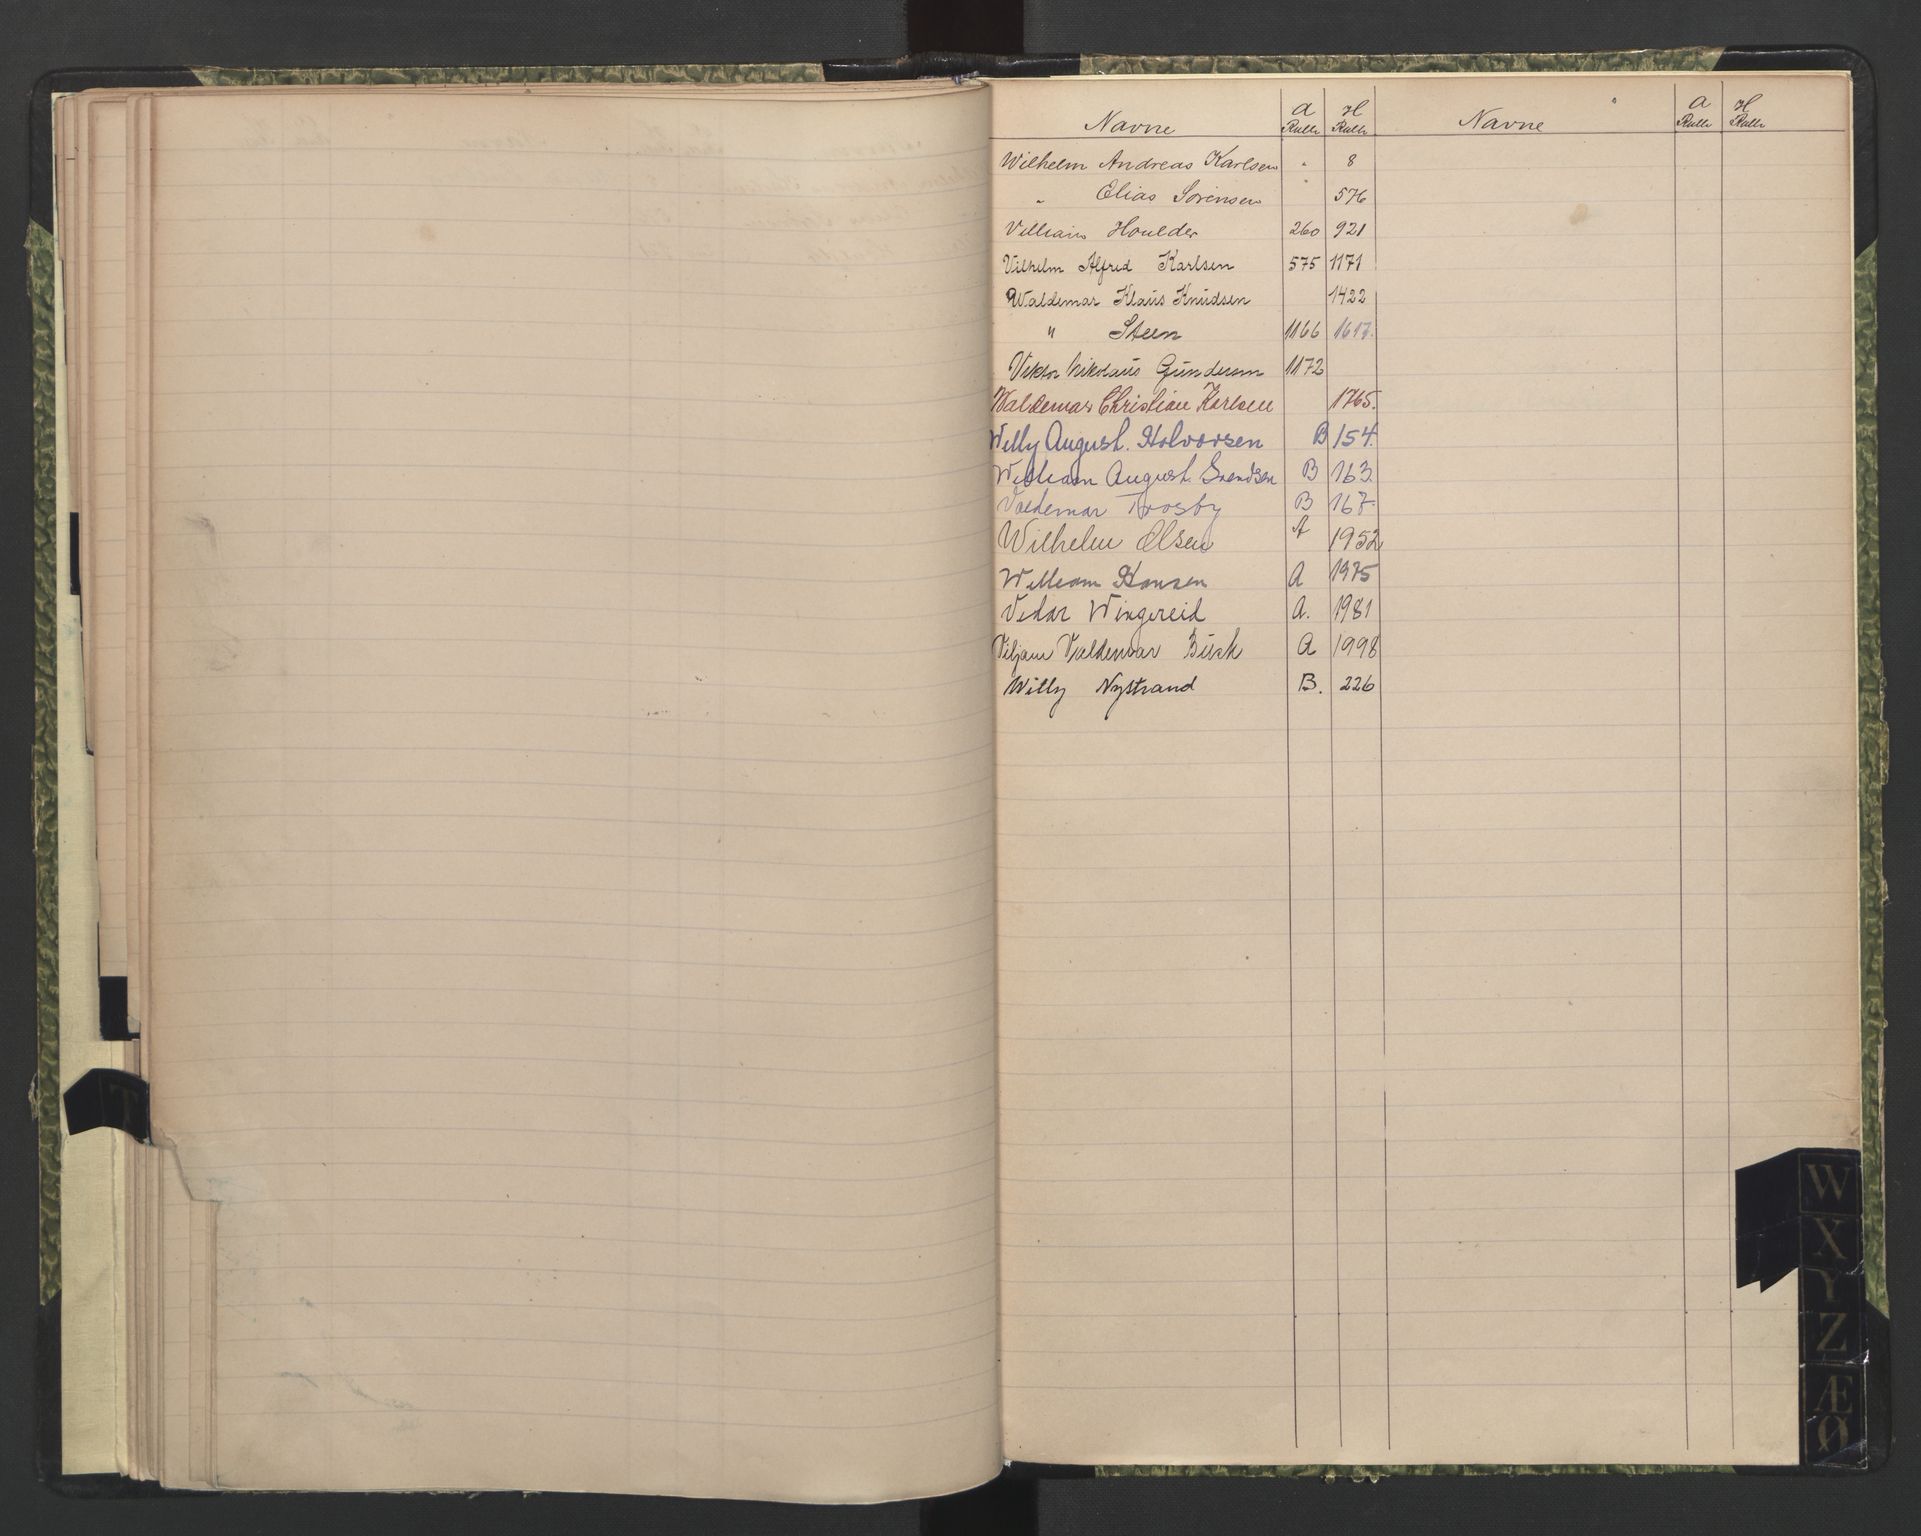 Navne A Rulle H Rulle Navne A Rulle H Rulle
Wilhelm Andreas Karlsen " 8
" Elias Sørensen 576
Villiam Houlder 260 921
Vilhelm Alfred Karlsen 575 1171
Waldemar Klaus Knudsen 1422
" Steen 1166 1617.
Viktor Nikolaus Gundersen 1172
Waldemar Christian Karlsen 1765.
Willy August. Halvorsen B 154.
William August. Svendsen B 163.
Valdemar Trosby B 167.
Wilhelm Olsen A 1952
William Hansen A 1975
Vidar Wingereid A. 1981
Viljam Valdemar Busk A 1998
Willy Nystrand B. 226
T
W
X
Y
Z
Æ
Ø